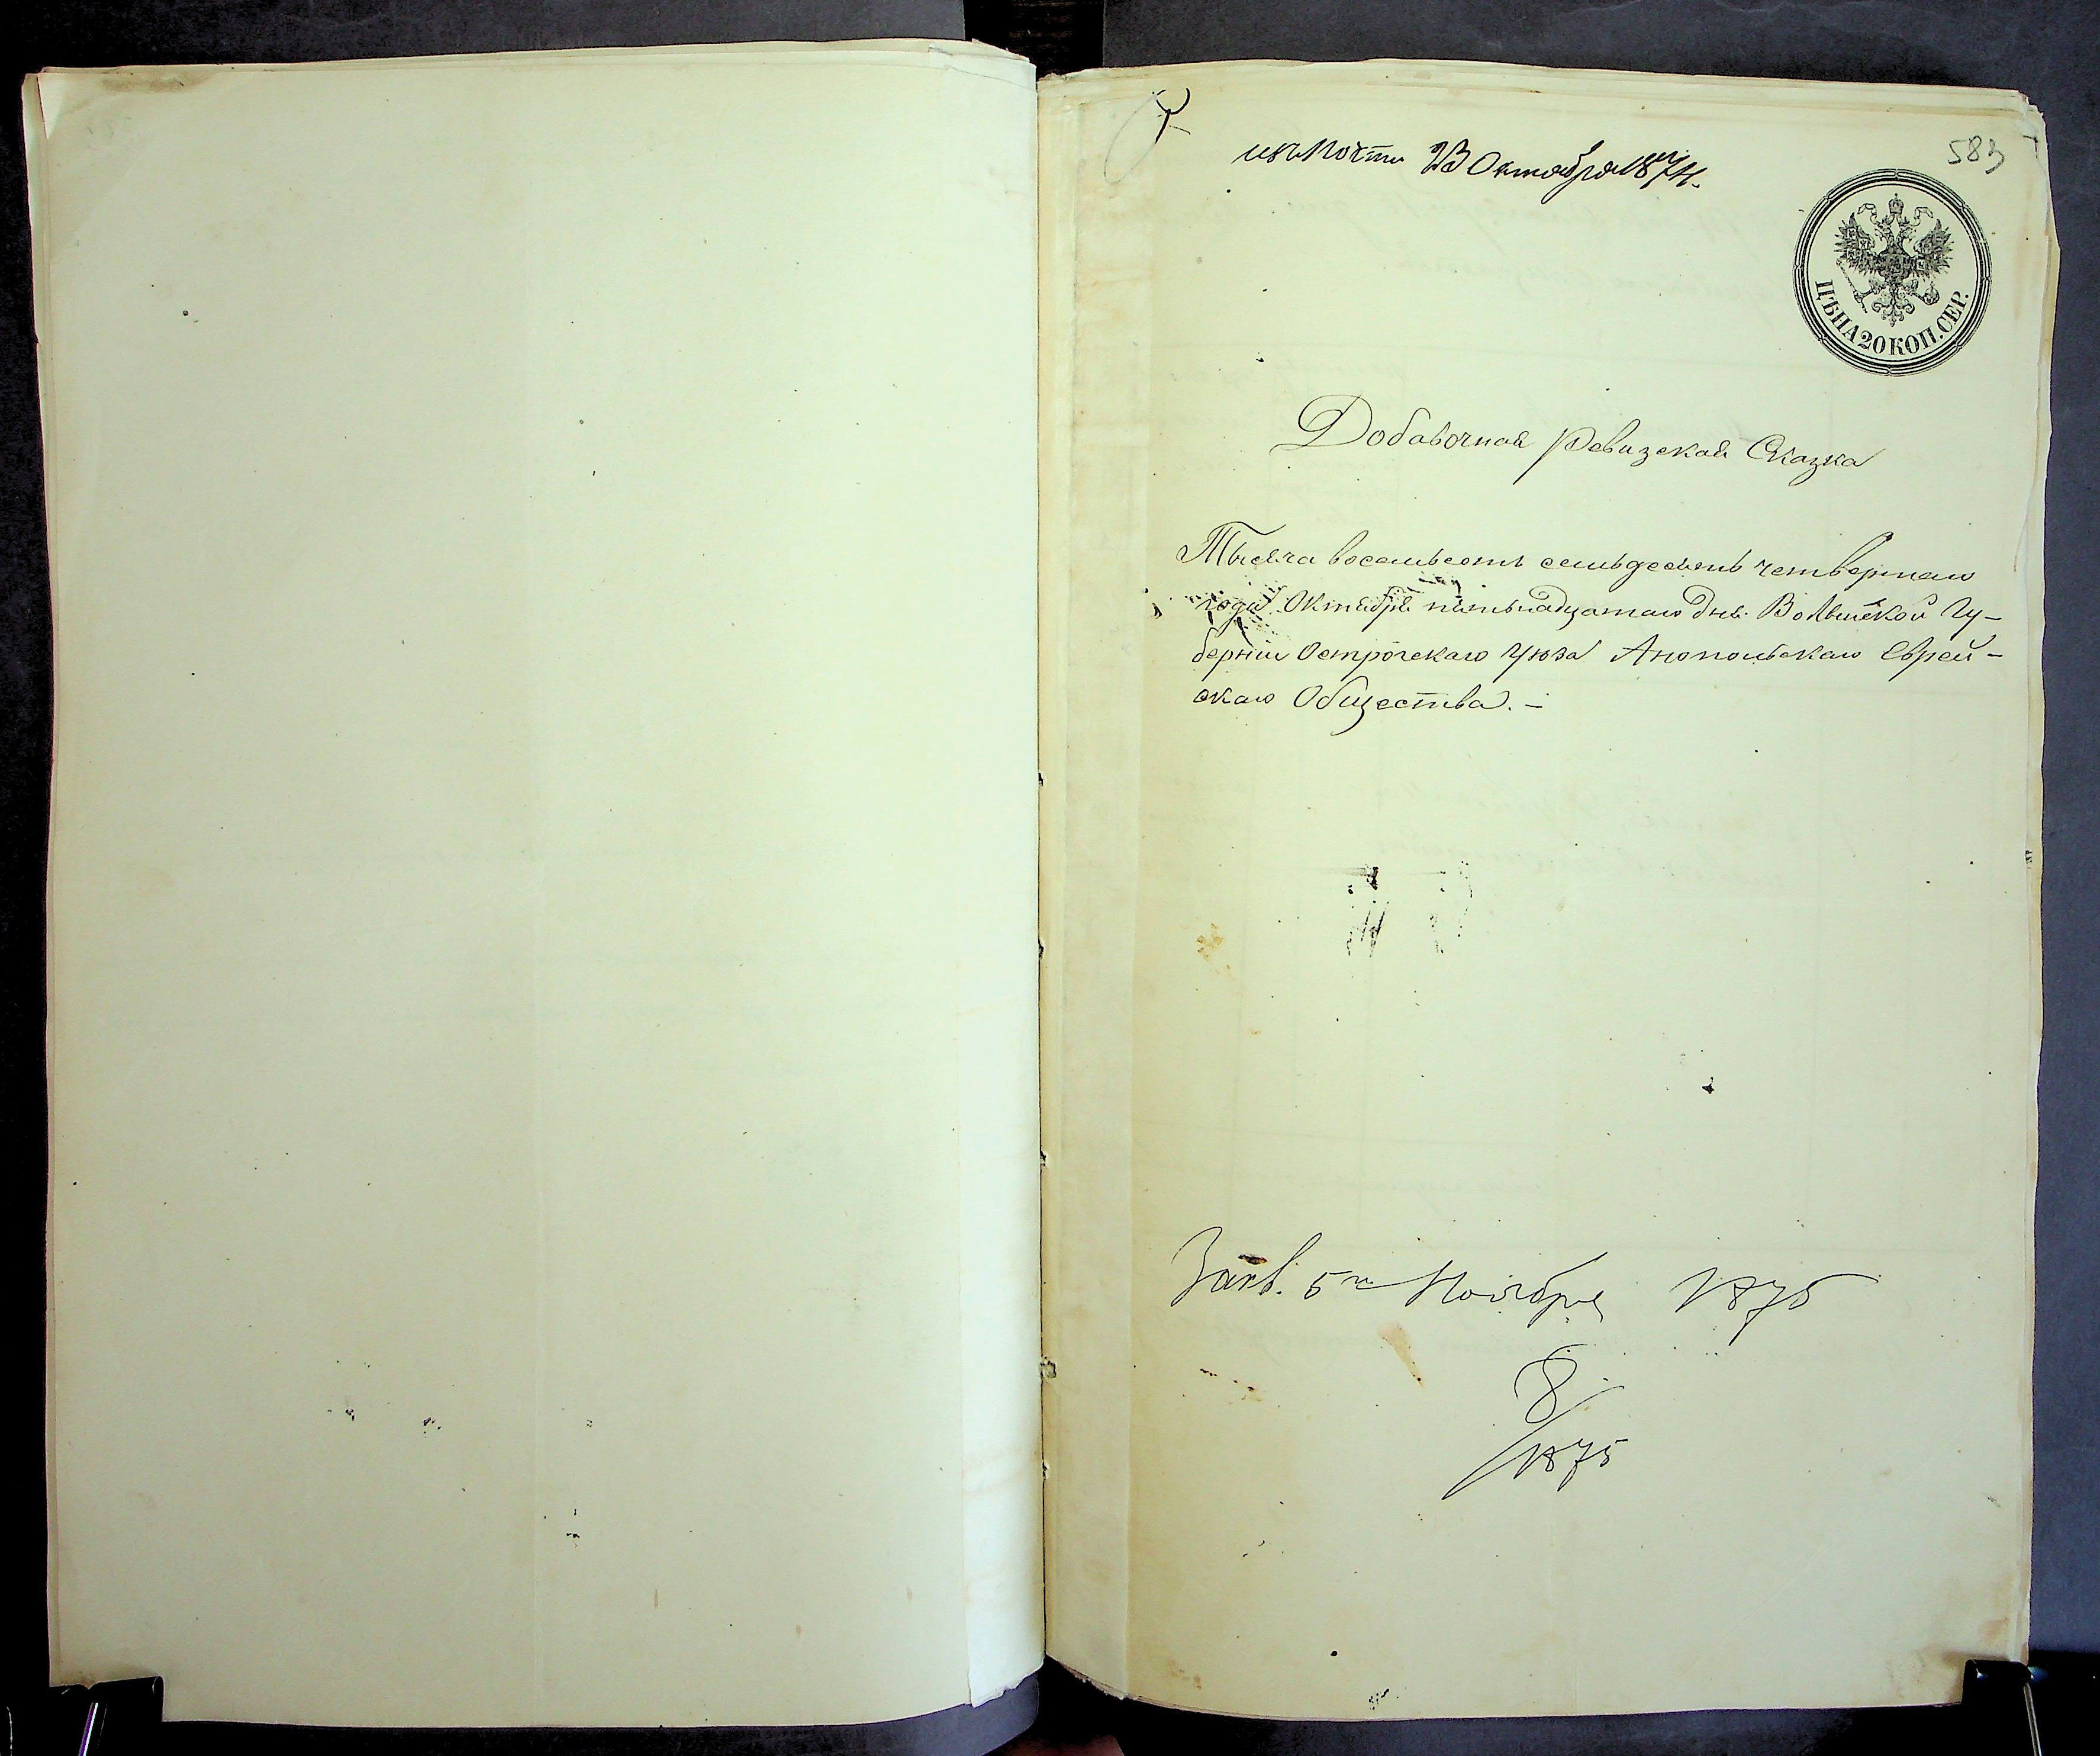 изъ Почты 23 Октября 1874.
583
ЦѢНА 20 КОП. СЕР.
Добавочная Ревизская Сказка
Тысяча восемьсотъ семьдесятъ четвертаго
года Октября пятьнадцатаго дня Волынской Гу-
берніи Острогскаго Уѣзда Анопольскаго Еврей-
скаго Общества. —
5го Ноября 1875
8/1875